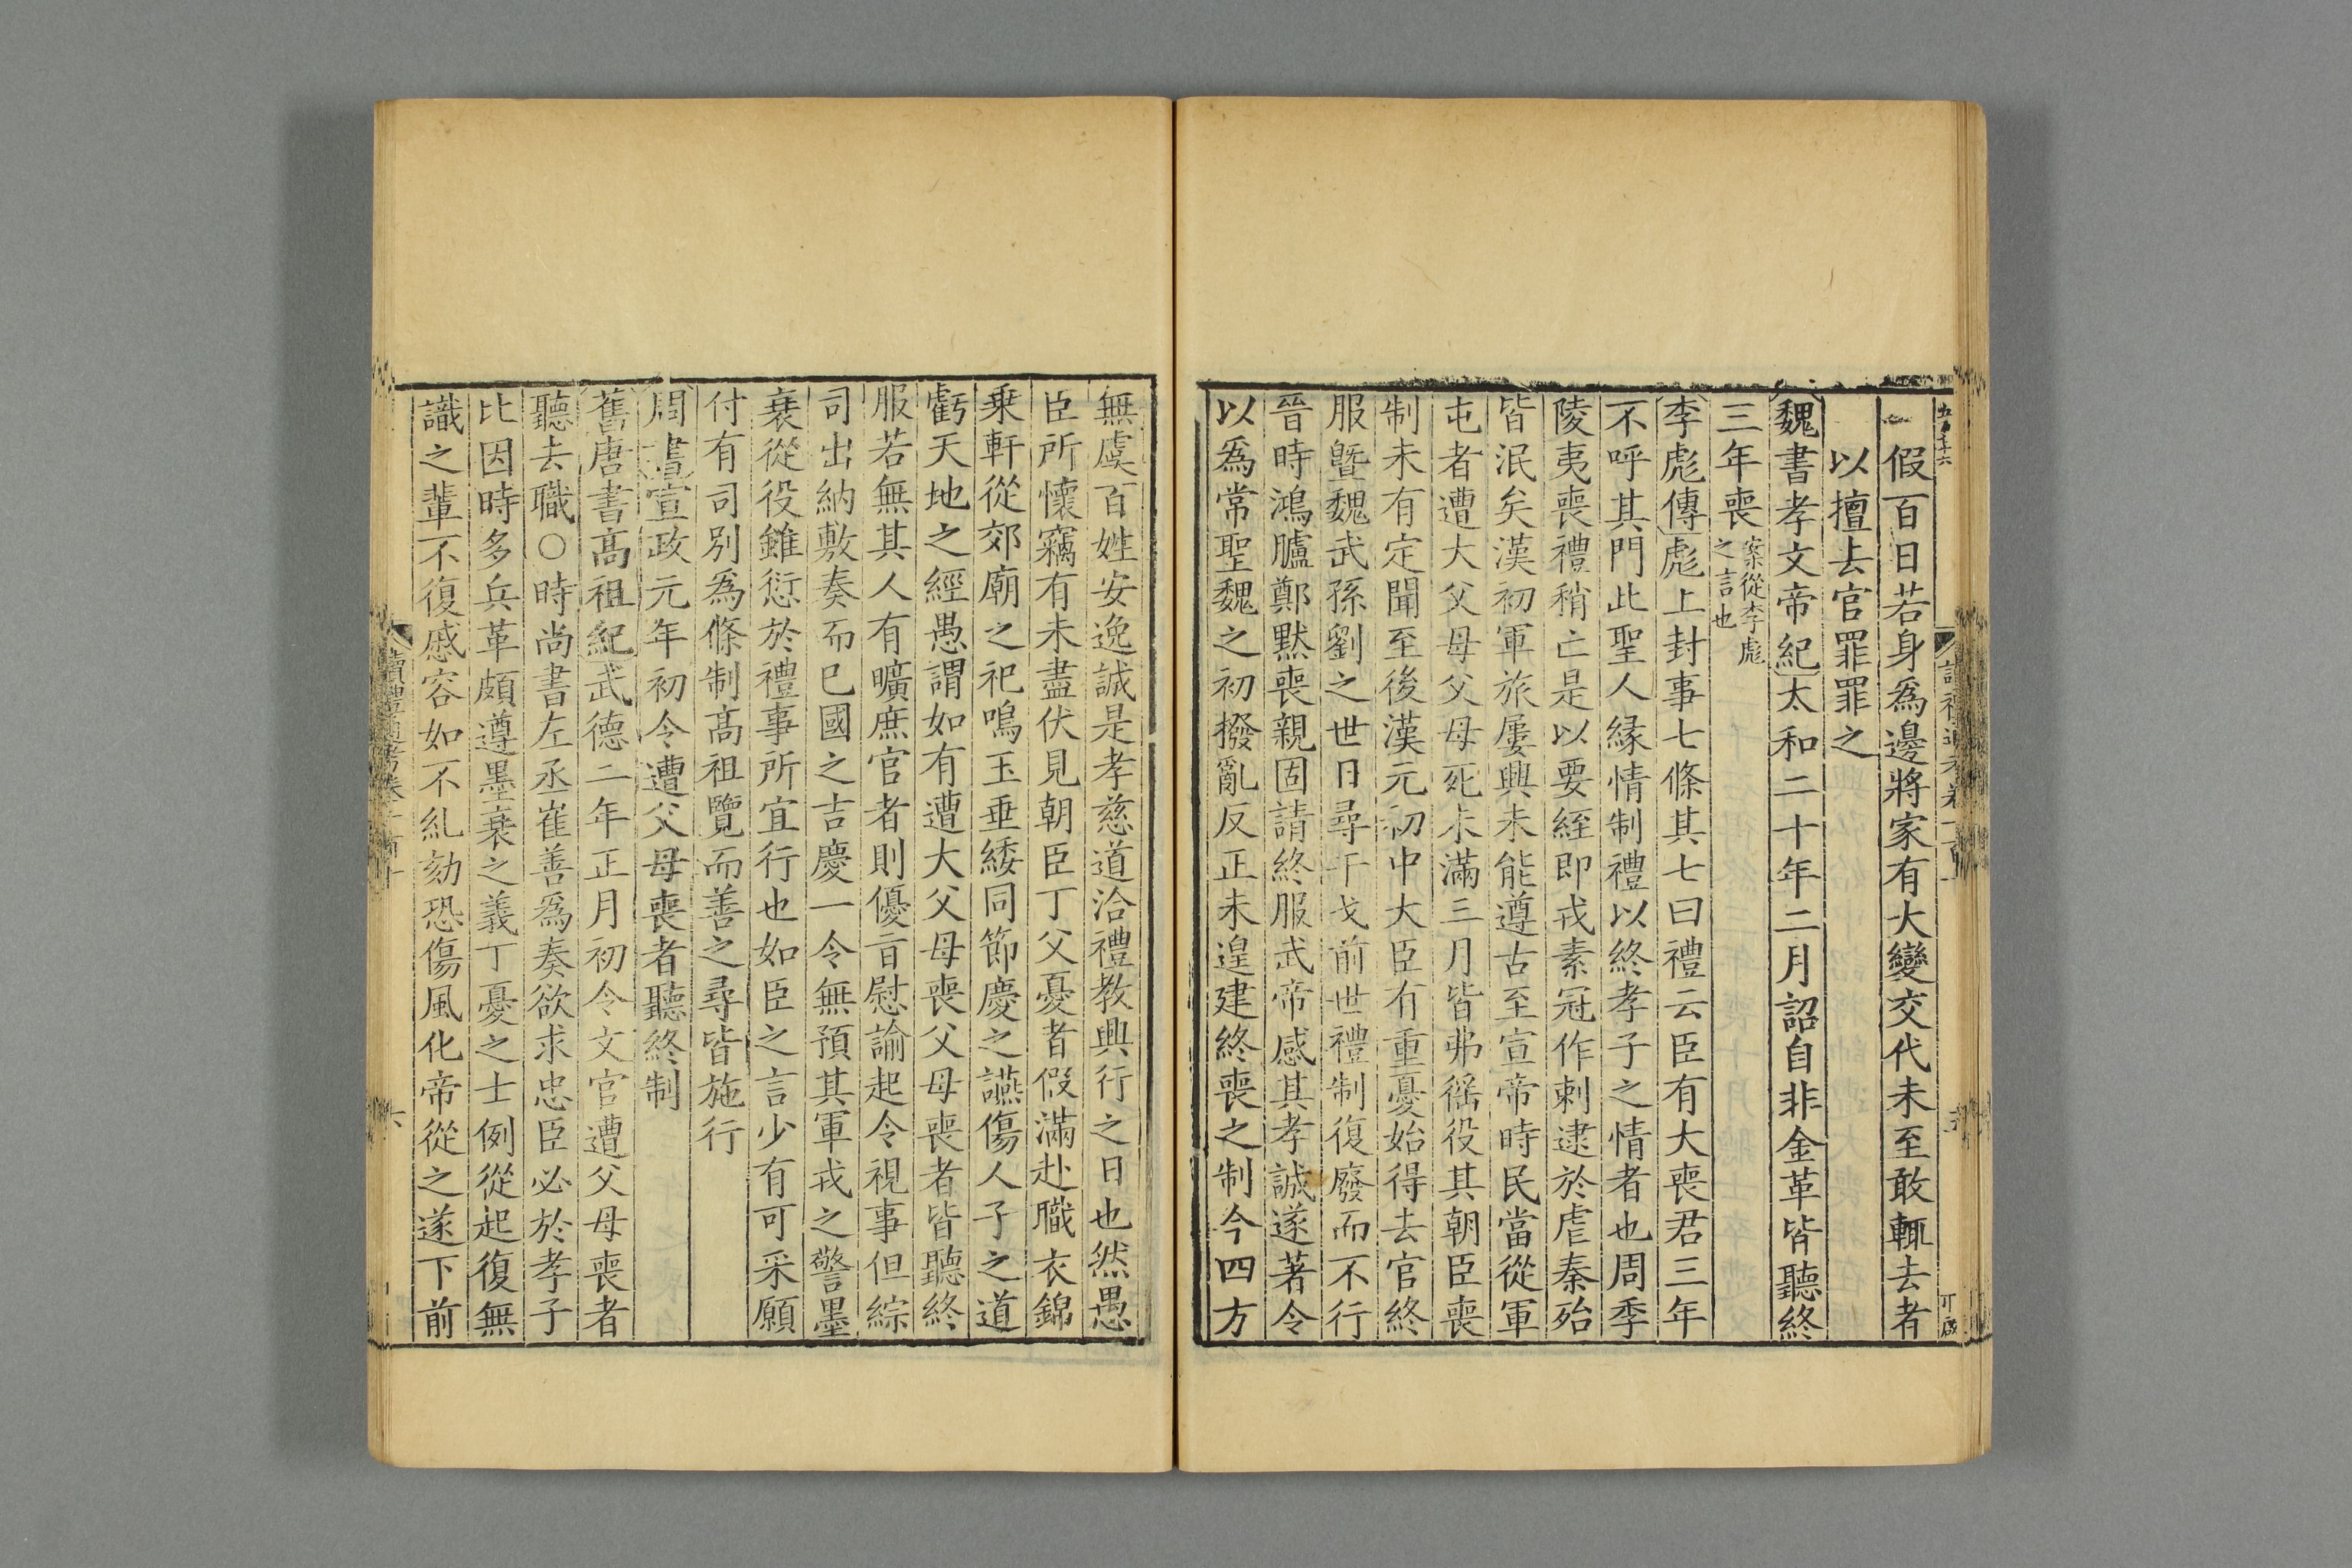 假百日若身爲邊將家有大變交代未至敢輒去者
以擅去官罪罪之
魏書孝文帝紀太和二十年二月詔自非金革皆聽終
三年喪案從李彪之言也
李彪傳彪上封事七條其七曰禮云臣有大喪君三年
不呼其門此聖人緣情制禮以終孝子之情者也周季
陵夷喪禮稍亡是以要絰即戎素冠作刺逮於虐秦殆
皆泯矣漢初軍旅屢興未能遵古至宣帝時民當從軍
屯者遭大父母父母死未滿三月皆弗徭役其朝臣喪
制未有定聞至後漢元初中大臣有重憂始得去官終
服曁魏武孫劉之世日尋干戈前世禮制復廢而不行
晉時鴻臚鄭黙喪親固請終服武帝感其孝誠遂著令
以爲常聖魏之初撥亂反正未遑建終喪之制今四方
無虞百姓安逸誠是孝慈道洽禮教興行之日也然愚
臣所懷竊有未盡伏見朝臣丁父憂者假滿赴職衣錦
乗軒從郊廟之祀鳴玉垂緌同節慶之讌傷人子之道
虧天地之經愚謂如有遭大父母喪父母喪者皆聽終
服若無其人有曠庶官者則優旨慰諭起令視事但綜
司出納敷奏而已國之吉慶一令無預其軍戎之警墨
衰從役雖愆於禮事所宜行也如臣之言少有可采願
付有司別爲條制髙祖覽而善之尋皆施行
周書宣政元年初令遭父母喪者聽終制
舊唐書髙祖紀武德二年正月初令文官遭父母喪者
聽去職〇時尚書左丞崔善爲奏欲求忠臣必於孝子
比因時多兵革頗遵墨衰之義丁憂之士例從起復無
識之輩不復慼容如不糺劾恐傷風化帝從之遂下前
讀禮通考卷一百十
六